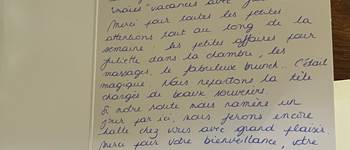 vraies vacances avec
Merci pour toutes les petites
attentions tout au long de la
semaine : les petites affaires pour
Juliette dans la chambre, les
massages, le fabuleux brunch... C'était
magique. Nous repartons la tête
chargée de beaux souvenirs.
Si notre route nous ramène un
jour par ici, nous ferons encore
halte chez vous avec grand plaisir.
Merci pour votre bienveillance, votre